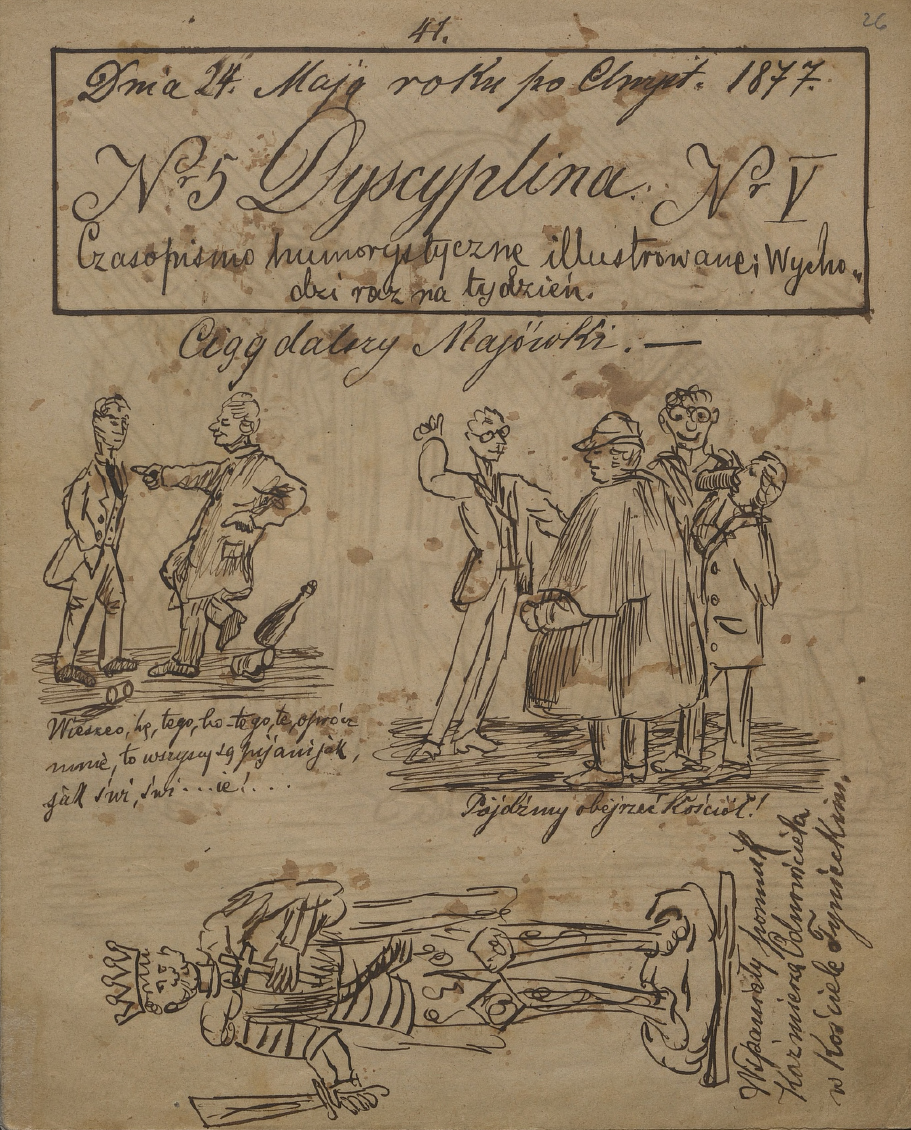 41.
26
Dnia 24. Maja roku po Chryst. 1877.
Nr 5 Dyscyplina. Nr V
Czasopismo humorystyczne illustrowane; Wycho„
dzi raz na tydzień.
Ciąg dalszy Majówki. —
Wieszco, he, tego, bo-tego, te, oprócz
mnie, to wszyscy są pijani jak,
jak świ, świ....ie!...
Pójdźmy obejrzeć Kościół!
Wspaniały pomnik
Kaźmierza Odnowiciela
w Kościele Tynieckim.